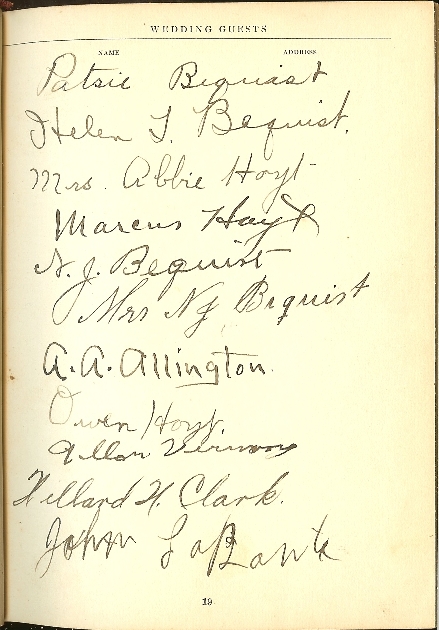 WEDDING GUESTS
NAME ADDRESS
Patsie Bequist
Helen T. Bequist.
Mrs. Abbie Hoyt
Marcus Hoyt
N. J. Bequist
Mrs NJ Bequist
A. A. Allington.
Owen Hoyt.
Allan Vernon
Willard H. Clark.
John LaBonte
19